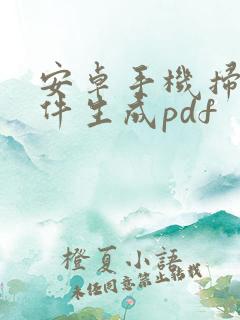 安卓手機掃
件生成pdf
橙夏小語
未经同意禁止转载